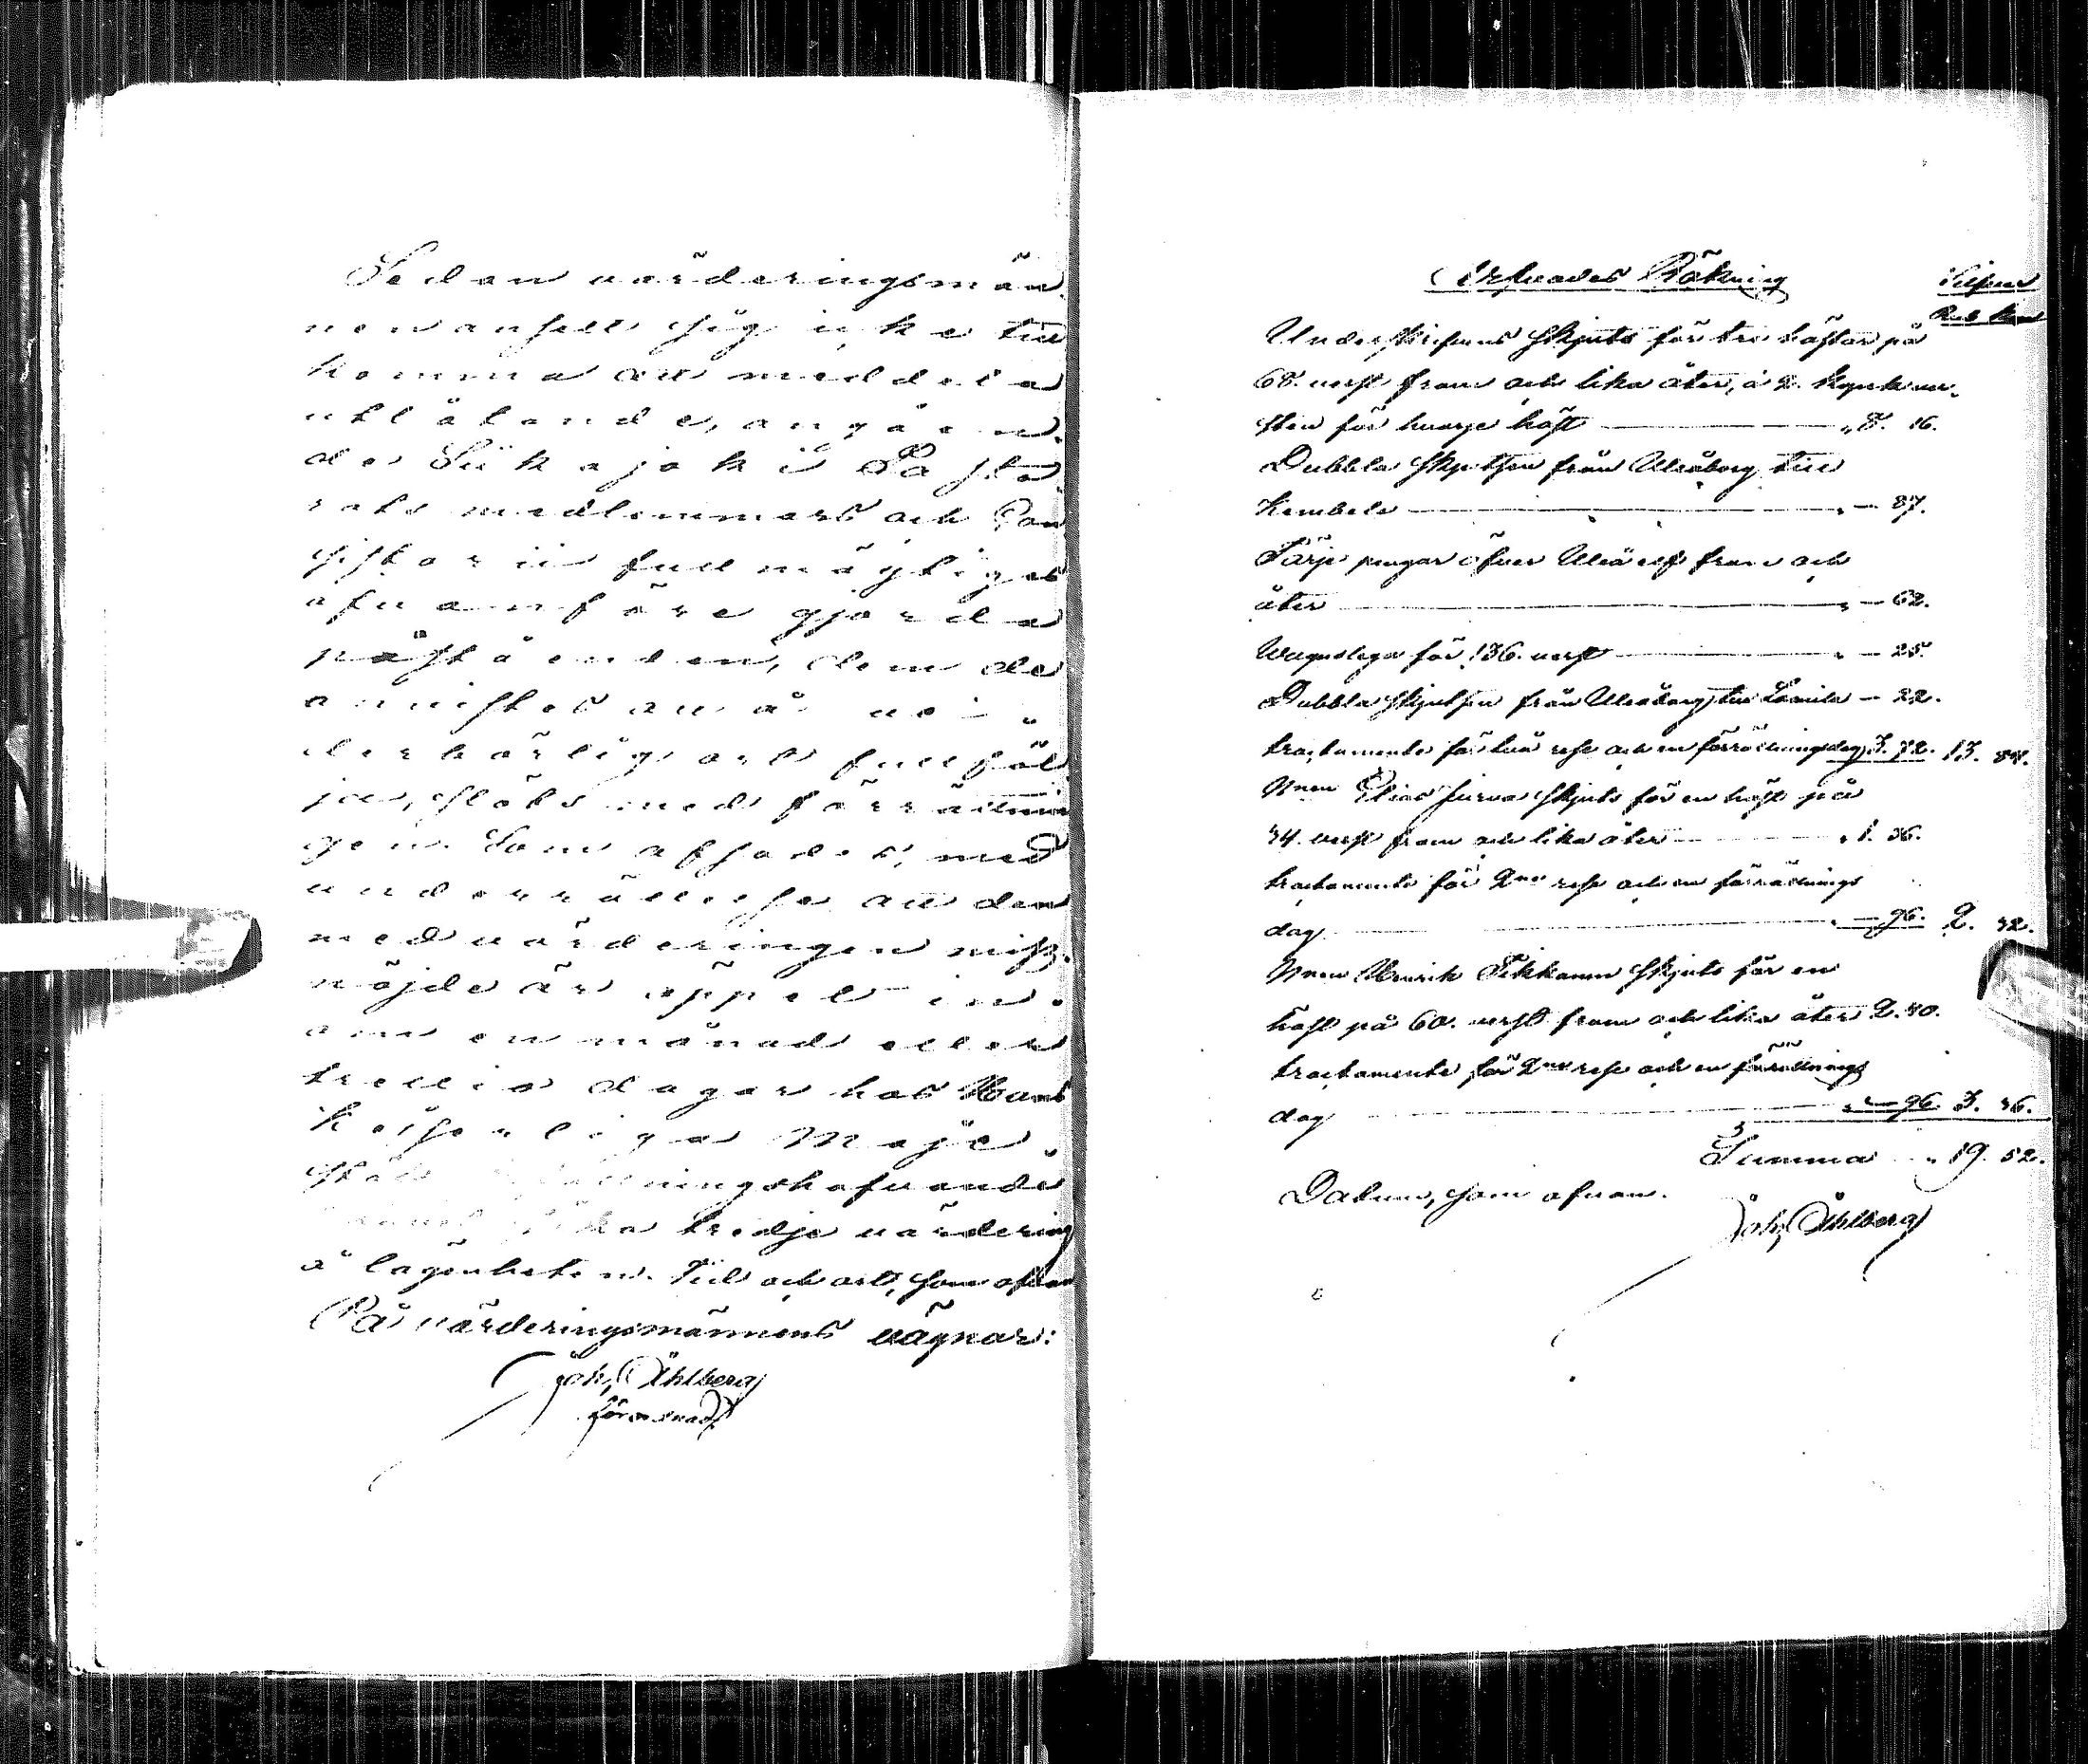 Sedan värderingsmän
nen ansett sig icke till
komma att meddela
utlåtande, angåen
de Siikajoki Pasto
rats medlemmars och Con
sistorii fullmägtiges
ofvanföre gjorda
påståenden, dem de
annistes att å ve-
derbörlig ort fullföl
ja, slöts med förrättnin
gen. Som afsades, med
underrättelse att den
med värderingen miss-
nöjde är öppet in-
om en månad eller
trettio dagar hos Hans
Kejserliga Maje-
stäts Befallningshafvande
söka tredje värdering
å lägenheten. Tid och ort, som ofvan
På värderingsmännens vägnar:
Joh, Åhlberg
förordnad
Arfvodes Räkning
Silfver
Rub. Kop
Underskrifvens skjuts för tre hästar på
68. verst fram och lika åter, à 2. kopek ver-
sten för hvarje häst „ 8. 16.
Dubbla skjutsen från Uleåborg till
Kembele „ — 87.
Färje pengar öfver Uleå elf fram och
åter „ — 62.
Wagnslega för 136. verst „ — 25.
Dubbla skjutsen från Uleåborg till — 22.
tractamente för två rese och en förrättningsdag 3. 72. 13. 84.
Nmn Elias Jurva skjuts för en häst på
34. verst fram och lika åter „ 1. 36.
tractamente för 2ne rese och en förrättnings
dag „ — 96. 2. 32.
Nmn Henrik Tikkanen skjuts för en
häst på 60. verst fram och lika åter 2. 40.
tractamente för 2ne rese och en förrättnings
dag „ — 96. 3. 36.
Summa „ 19. 52.
Datum, som ofvan.
Joh, Åhlberg